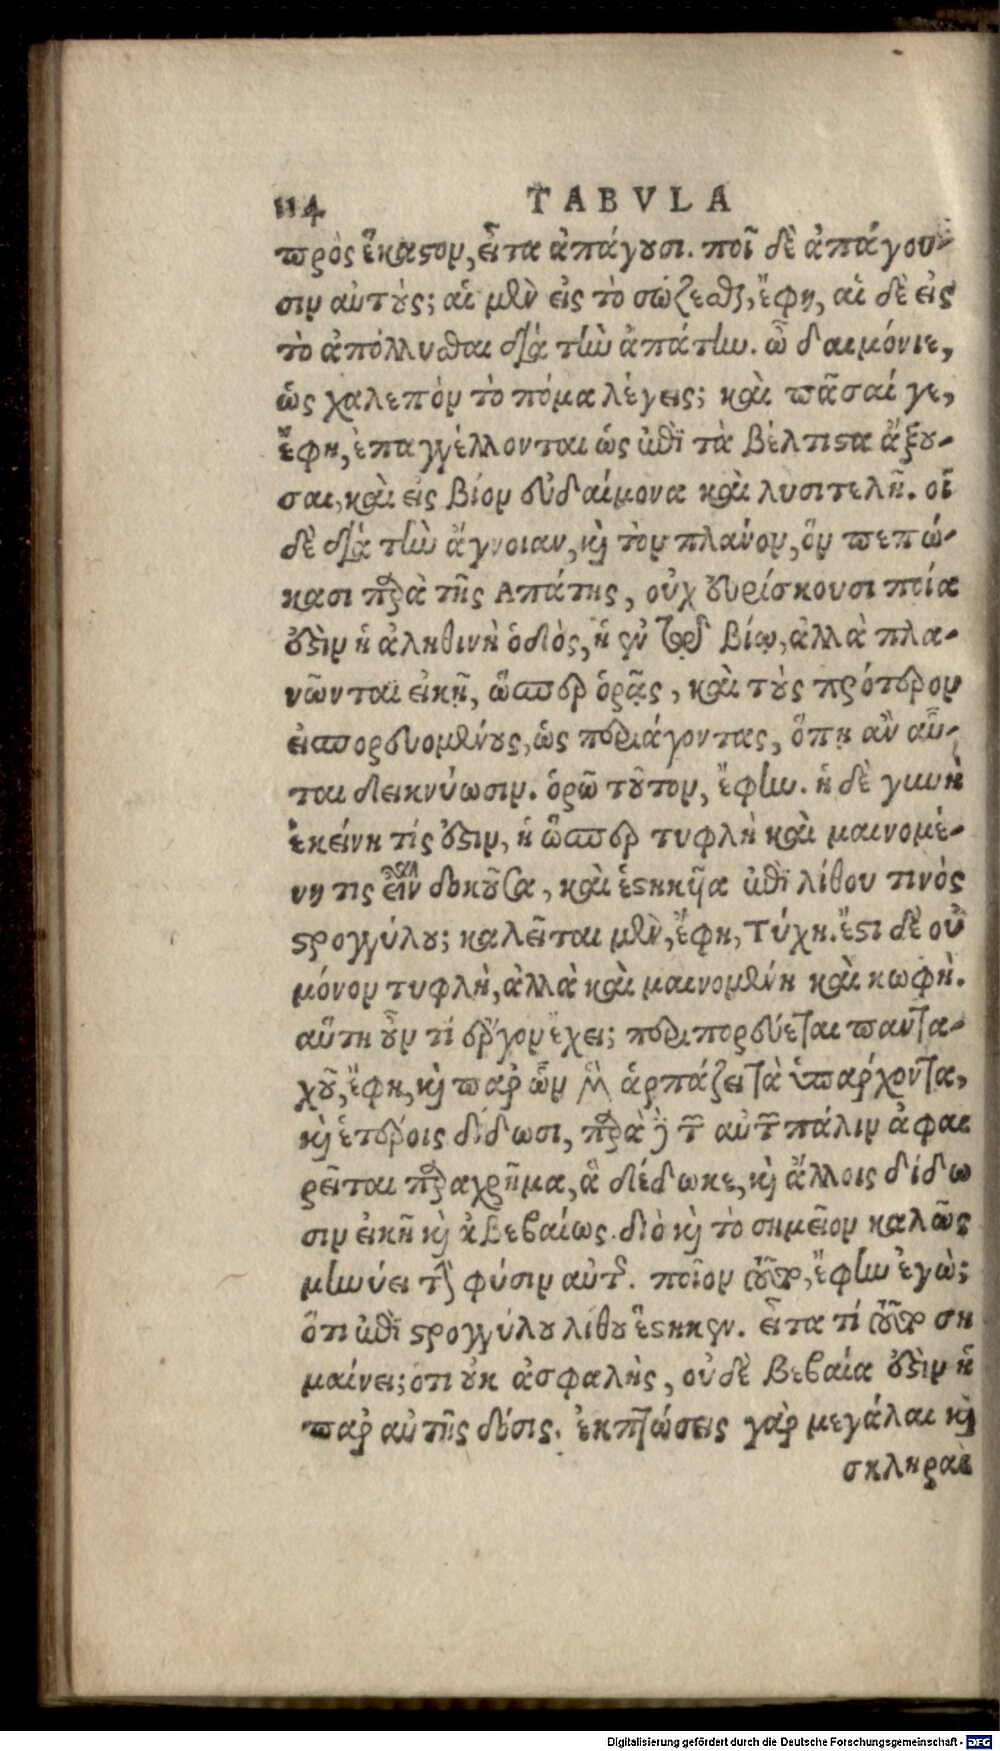 114 TABVLA
πρὸς ἕκαστον, εἶτα ἀπάγουσι. ποῖ δὲ ἀπάγου-
σιν αὐτούς; αἱ μὲν εἰς τὸ σώζεσθαι, ἔφη, αἱ δὲ εἰς
τὸ ἀπόλλυσθαι διὰ τὴν ἀπάτην. ὦ δαιμόνιε,
ὡς χαλεπὸν τὸ πόμα λέγεις; καὶ πᾶσαί γε,
ἔφη, ἐπαγγέλλονται ὡς ἐπὶ τὰ βέλτιστα ἄξου-
σαι, καὶ εἰς βίον εὐδαίμονα καὶ λυσιτελῆ. οἳ
δὲ διὰ τὴν ἄγνοιαν, καὶ τὸν πλάνον, ὃν πεπώ-
κασι παρὰ τῆς Ἀπάτης, οὐχ εὑρίσκουσι ποία
ἐστὶν ἡ ἀληθινὴ ὁδὸς, ἡ ἐν τῷ βίῳ, ἀλλὰ πλα-
νῶνται εἰκῆ, ὥσπερ ὁρᾷς, καὶ τοὺς πρότερον
εἰσπορευομένους, ὡς περιάγοντας, ὅπη ἂν αὗ-
ται δεικνύωσιν. ὁρῶ τοῦτον, ἔφην. ἡ δὲ γυνὴ
ἐκείνη τίς ἐστιν, ἡ ὥσπερ τυφλὴ καὶ μαινομέ-
νη τις εἶναι δοκοῦσα, καὶ ἑστηκῆα ἐπὶ λίθου τινὸς
στρογγύλου; καλεῖται μὲν, ἔφη, Τύχη. ἔστι δὲ οὐ
μόνον τυφλὴ, ἀλλὰ καὶ μαινομένη καὶ κωφὴ.
αὕτη οὖν τί ἔργον ἔχει; περιπορεύεται παντα-
χοῦ, ἔφη, καὶ παρ ὧν μὲν ἁρπάζει τὰ ὑπάρχοντα,
καὶ ἑτέροις δίδωσι, παρὰ δὲ τῶν αὐτῶν πάλιν ἀφαι
ρεῖται παραχρῆμα, ἃ δέδωκε, καὶ ἄλλοις δίδω
σιν εἰκῆ καὶ ἀβεβαίως. διὸ καὶ τὸ σημεῖον καλῶς
μηνύει τὴν φύσιν αὐτῆς. ποῖον τοῦτο, ἔφην ἐγὼ;
ὅτι ἐπὶ στρογγύλου λίθου ἕστηκεν. εἶτα τί τοῦτο ση
μαίνει; ὅτι οὐκ ἀσφαλὴς, οὐδὲ βεβαία ἐστὶν ἡ
παρ αὐτῆς δόσις. ἐκπτώσεις γὰρ μεγάλαι καὶ
σκληραὶ
Digitalisierung gefördert durch die Deutsche Forschungsgemeinschaft - DFG